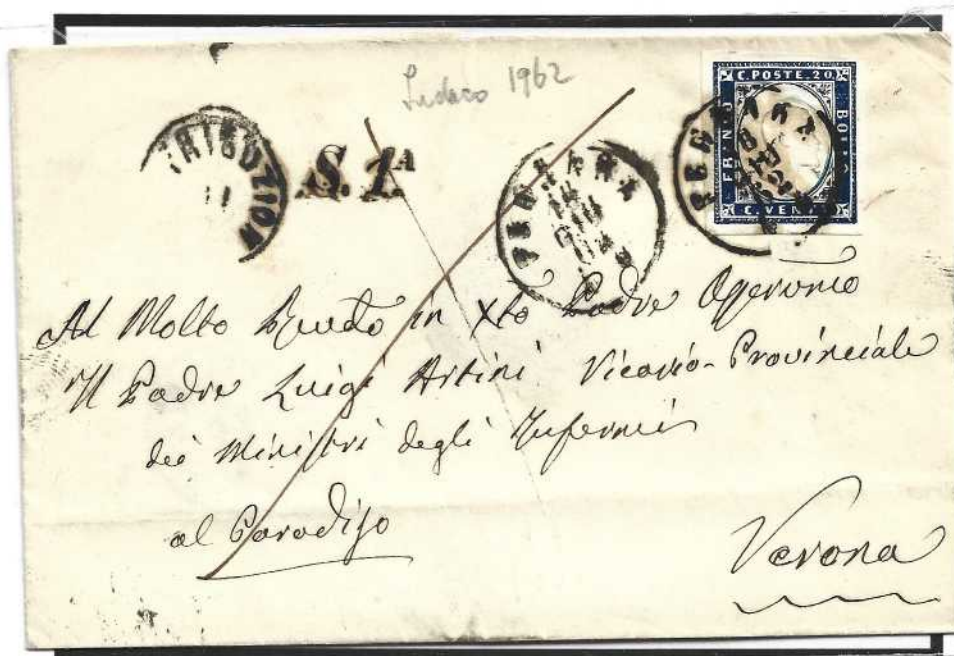 1962
C. POSTE. 20
FRANCO
BOLLO
C. VENTI
DISTRIBUZION
S. 1ᴬ
FERRARA
FERRARA
Al Molto in Xto Padre
Il Padre Luigi Artini Vicario-Provinciale
dei Ministri degli Infermi
al Paradiso
Verona